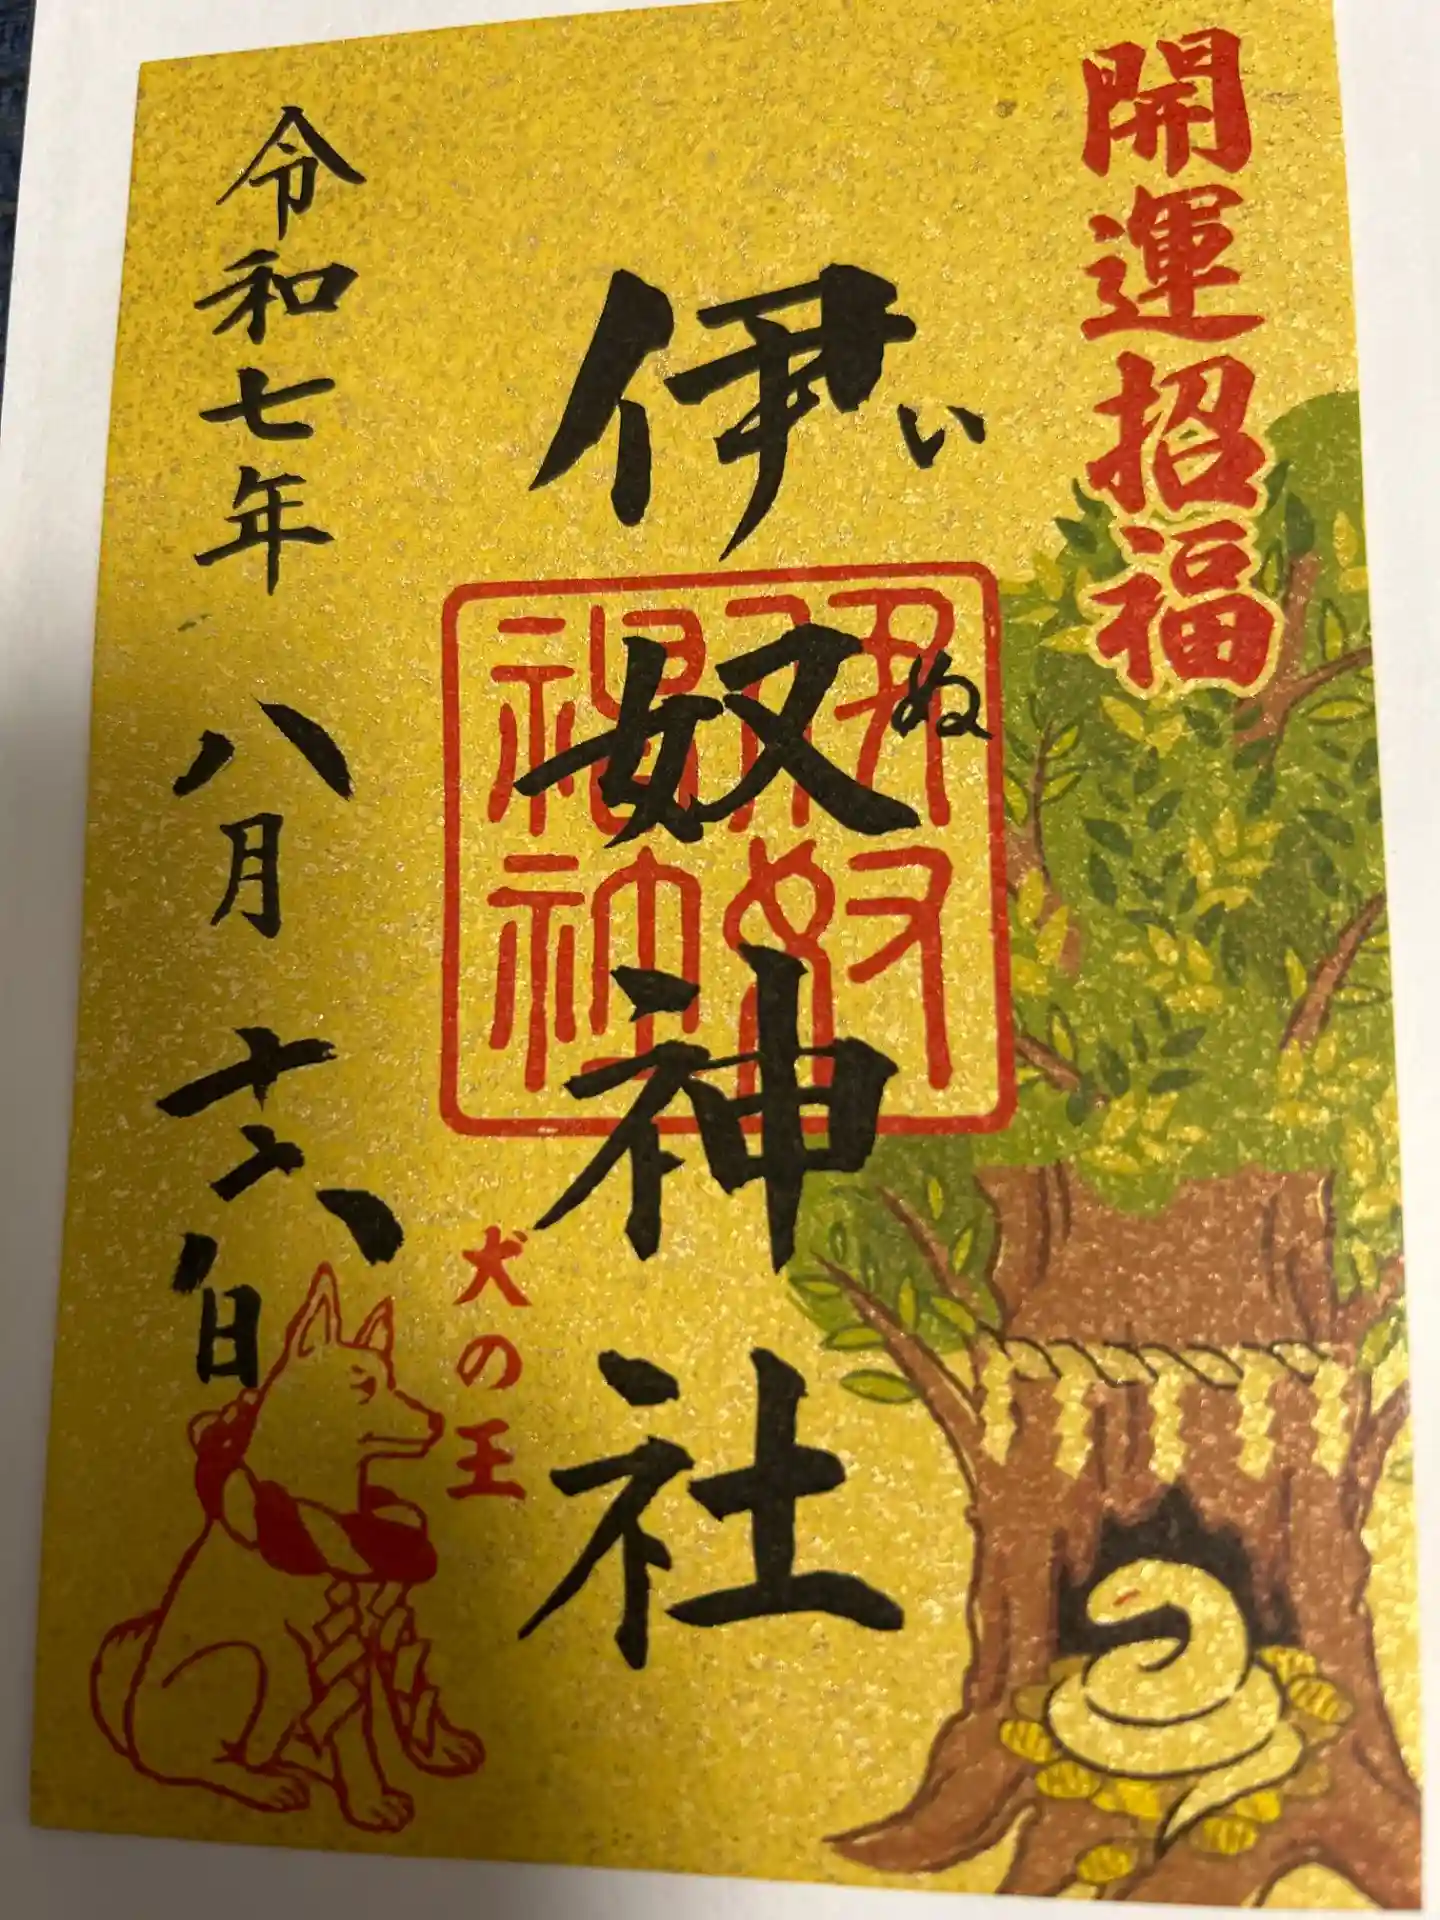 開運招福
伊奴神社
いぬ
伊奴神社
犬の王
令和七年 八月 十六日